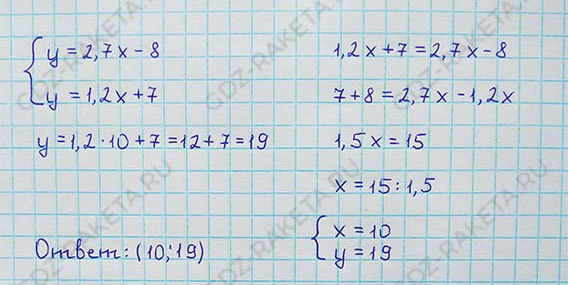 { y = 2,7x - 8
y = 1,2x + 7
y = 1,2 · 10 + 7 = 12 + 7 = 19
Ответ: (10; 19)
1,2x + 7 = 2,7x - 8
7 + 8 = 2,7x - 1,2x
1,5x = 15
x = 15 : 1,5
{ x = 10
y = 19
GDZ-RAKETA.RU